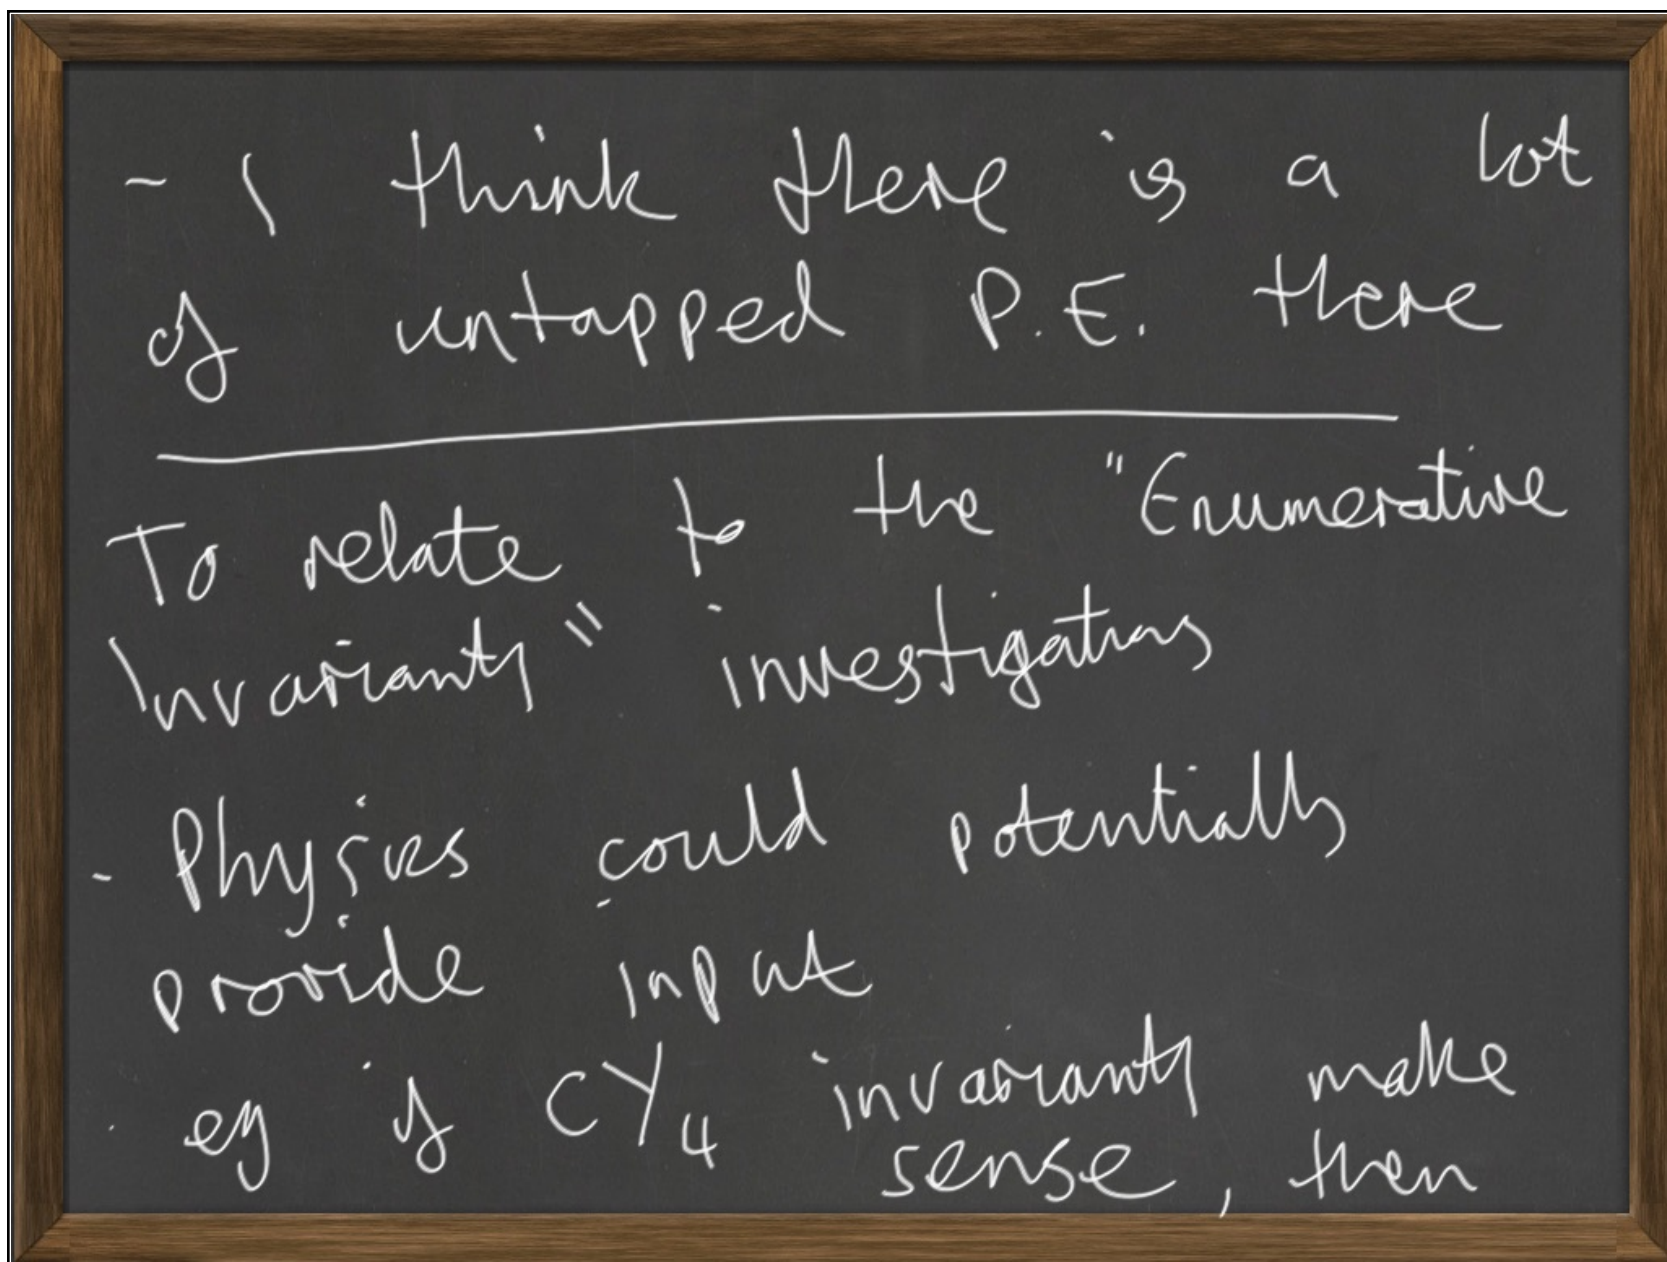 - I think there is a lot
of untapped P.E. there
To relate to the "Enumerative
Invariants" investigations
- Physics could potentially
provide input
· eg if CY₄ invariants make
sense, then